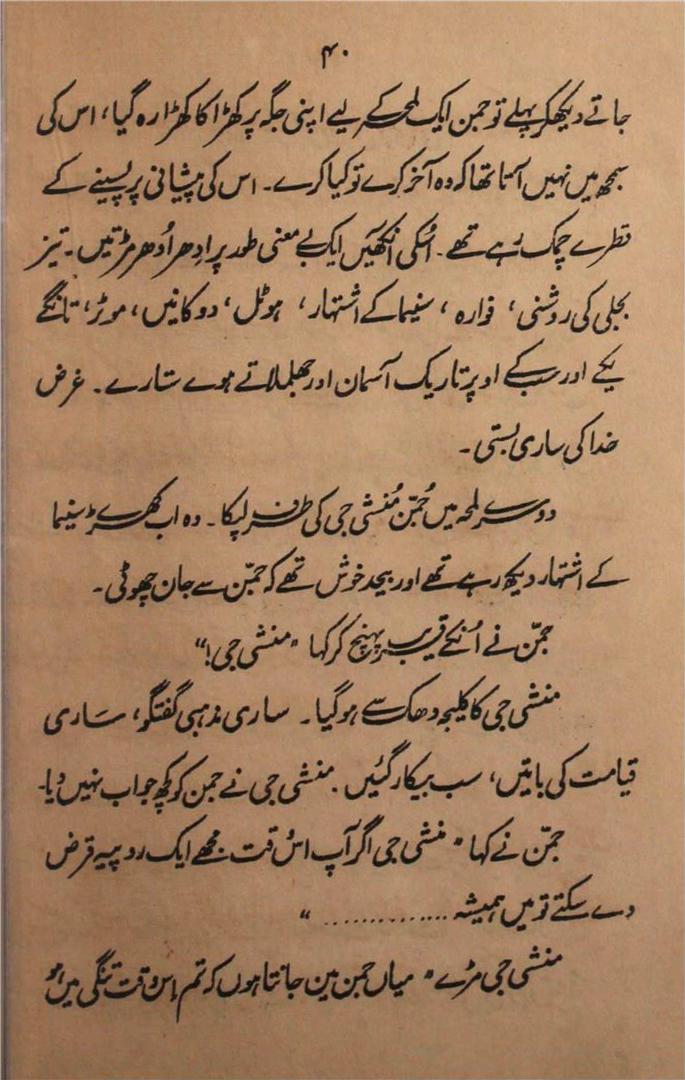 ۴۰
جاتے دیکھکر پہلے تو جمن ایک لمحہ کے لیے اپنی جگہ پر کھڑا کا کھڑا رہ گیا، اس کی
سمجھ میں نہیں آتا تھا کہ وہ آخر کرے تو کیا کرے۔ اس کی پیشانی پر پسینے کے
قطرے چمک رہے تھے۔ اُسکی آنکھیں ایک بے معنی طور پر اِدھر اُدھر مڑتیں۔ تیز
بجلی کی روشنی، فوارہ، سنیما کے اشتہار، ہوٹل، دوکانیں، موٹر، تانگے
یکے اور سب کے اوپر تاریک آسمان اور جھلملاتے ہوے ستارے۔ غرض
خدا کی ساری بستی۔
دوسرے لمحہ میں جُمّن مُنشی جی کی طرف لپکا۔ وہ اب کھڑے سنیما
کے اشتہار دیکھ رہے تھے اور بیحد خوش تھے کہ جمّن سے جان چھوٹی۔
جمّن نے اُنکے قریب پہنچ کر کہا "منشی جی!"
منشی جی کا کلیجہ دھک سے ہوگیا۔ ساری مذہبی گفتگو، ساری
قیامت کی باتیں، سب بیکار گئیں۔ منشی جی نے جمن کو کچھ جواب نہیں دیا۔
جمّن نے کہا "منشی جی اگر آپ اسُ قت مجھے ایک روپیہ قرض
دے سکتے تو میں ہمیشہ .............. "
منشی جی مڑے "میاں جمن مین جانتا ہوں کہ تم اِس وقت تنگی میں ہو